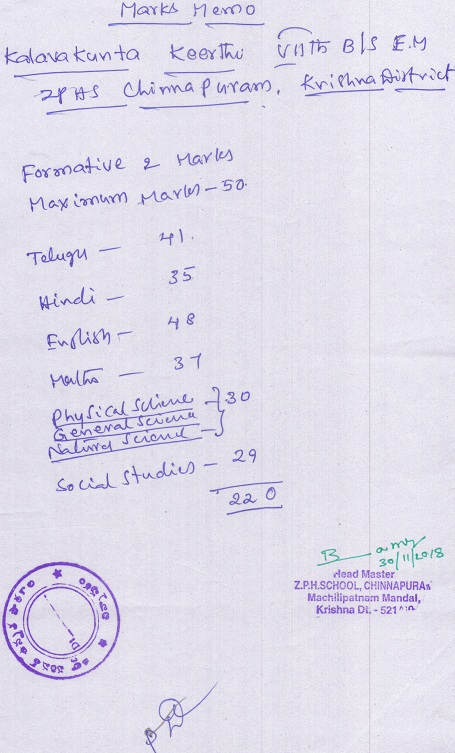 Marks Memo
Kalavakunta Keerthi VIIth B/S E.M
ZPHS Chinnapuram, Krishna District
Formative 2 Marks
Maximum Marks - 50
Telugu — 41.
Hindi — 35
English — 48
Maths — 37
Physical Science
General Science } 30
Natural Science
Social Studies — 29
220
30/11/2018
Head Master
Z.P.H.SCHOOL, CHINNAPURAM
Machilipatnam Mandal,
Krishna Dt. - 521